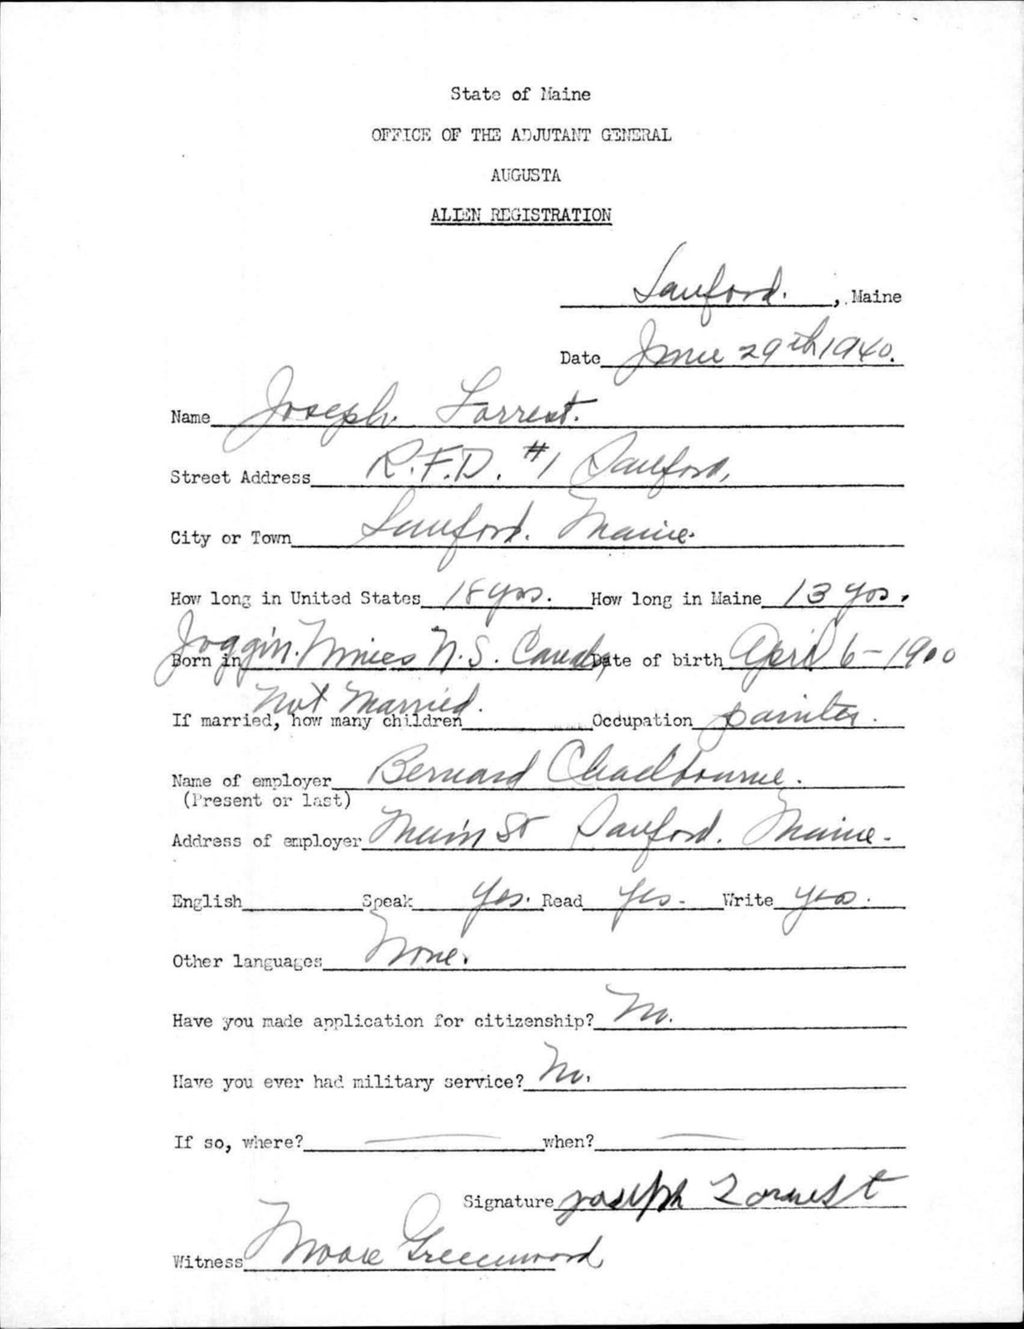 State of Maine
OFFICE OF THE ADJUTANT GENERAL
AUGUSTA
ALIEN REGISTRATION
Sanford. , Maine
Date June 29th 1940.
Name Joseph Forrest.
Street Address R.F.D. #1 Sanford,
City or Town Sanford. Maine.
How long in United States 18 yrs. How long in Maine 13 yrs.
Born in Joggin. Mines N.S. Canada, Date of birth April 6-1900
Not Married.
If married, how many children Occupation painter.
Name of employer Bernard Chadbourne.
(Present or last)
Address of employer Main St Sanford. Maine-
English Speak Yes. Read Yes- Write yes.
Other languages None.
Have you made application for citizenship? No.
Have you ever had military service? No.
If so, where? when?
Signature Joseph
Witness Greenwood